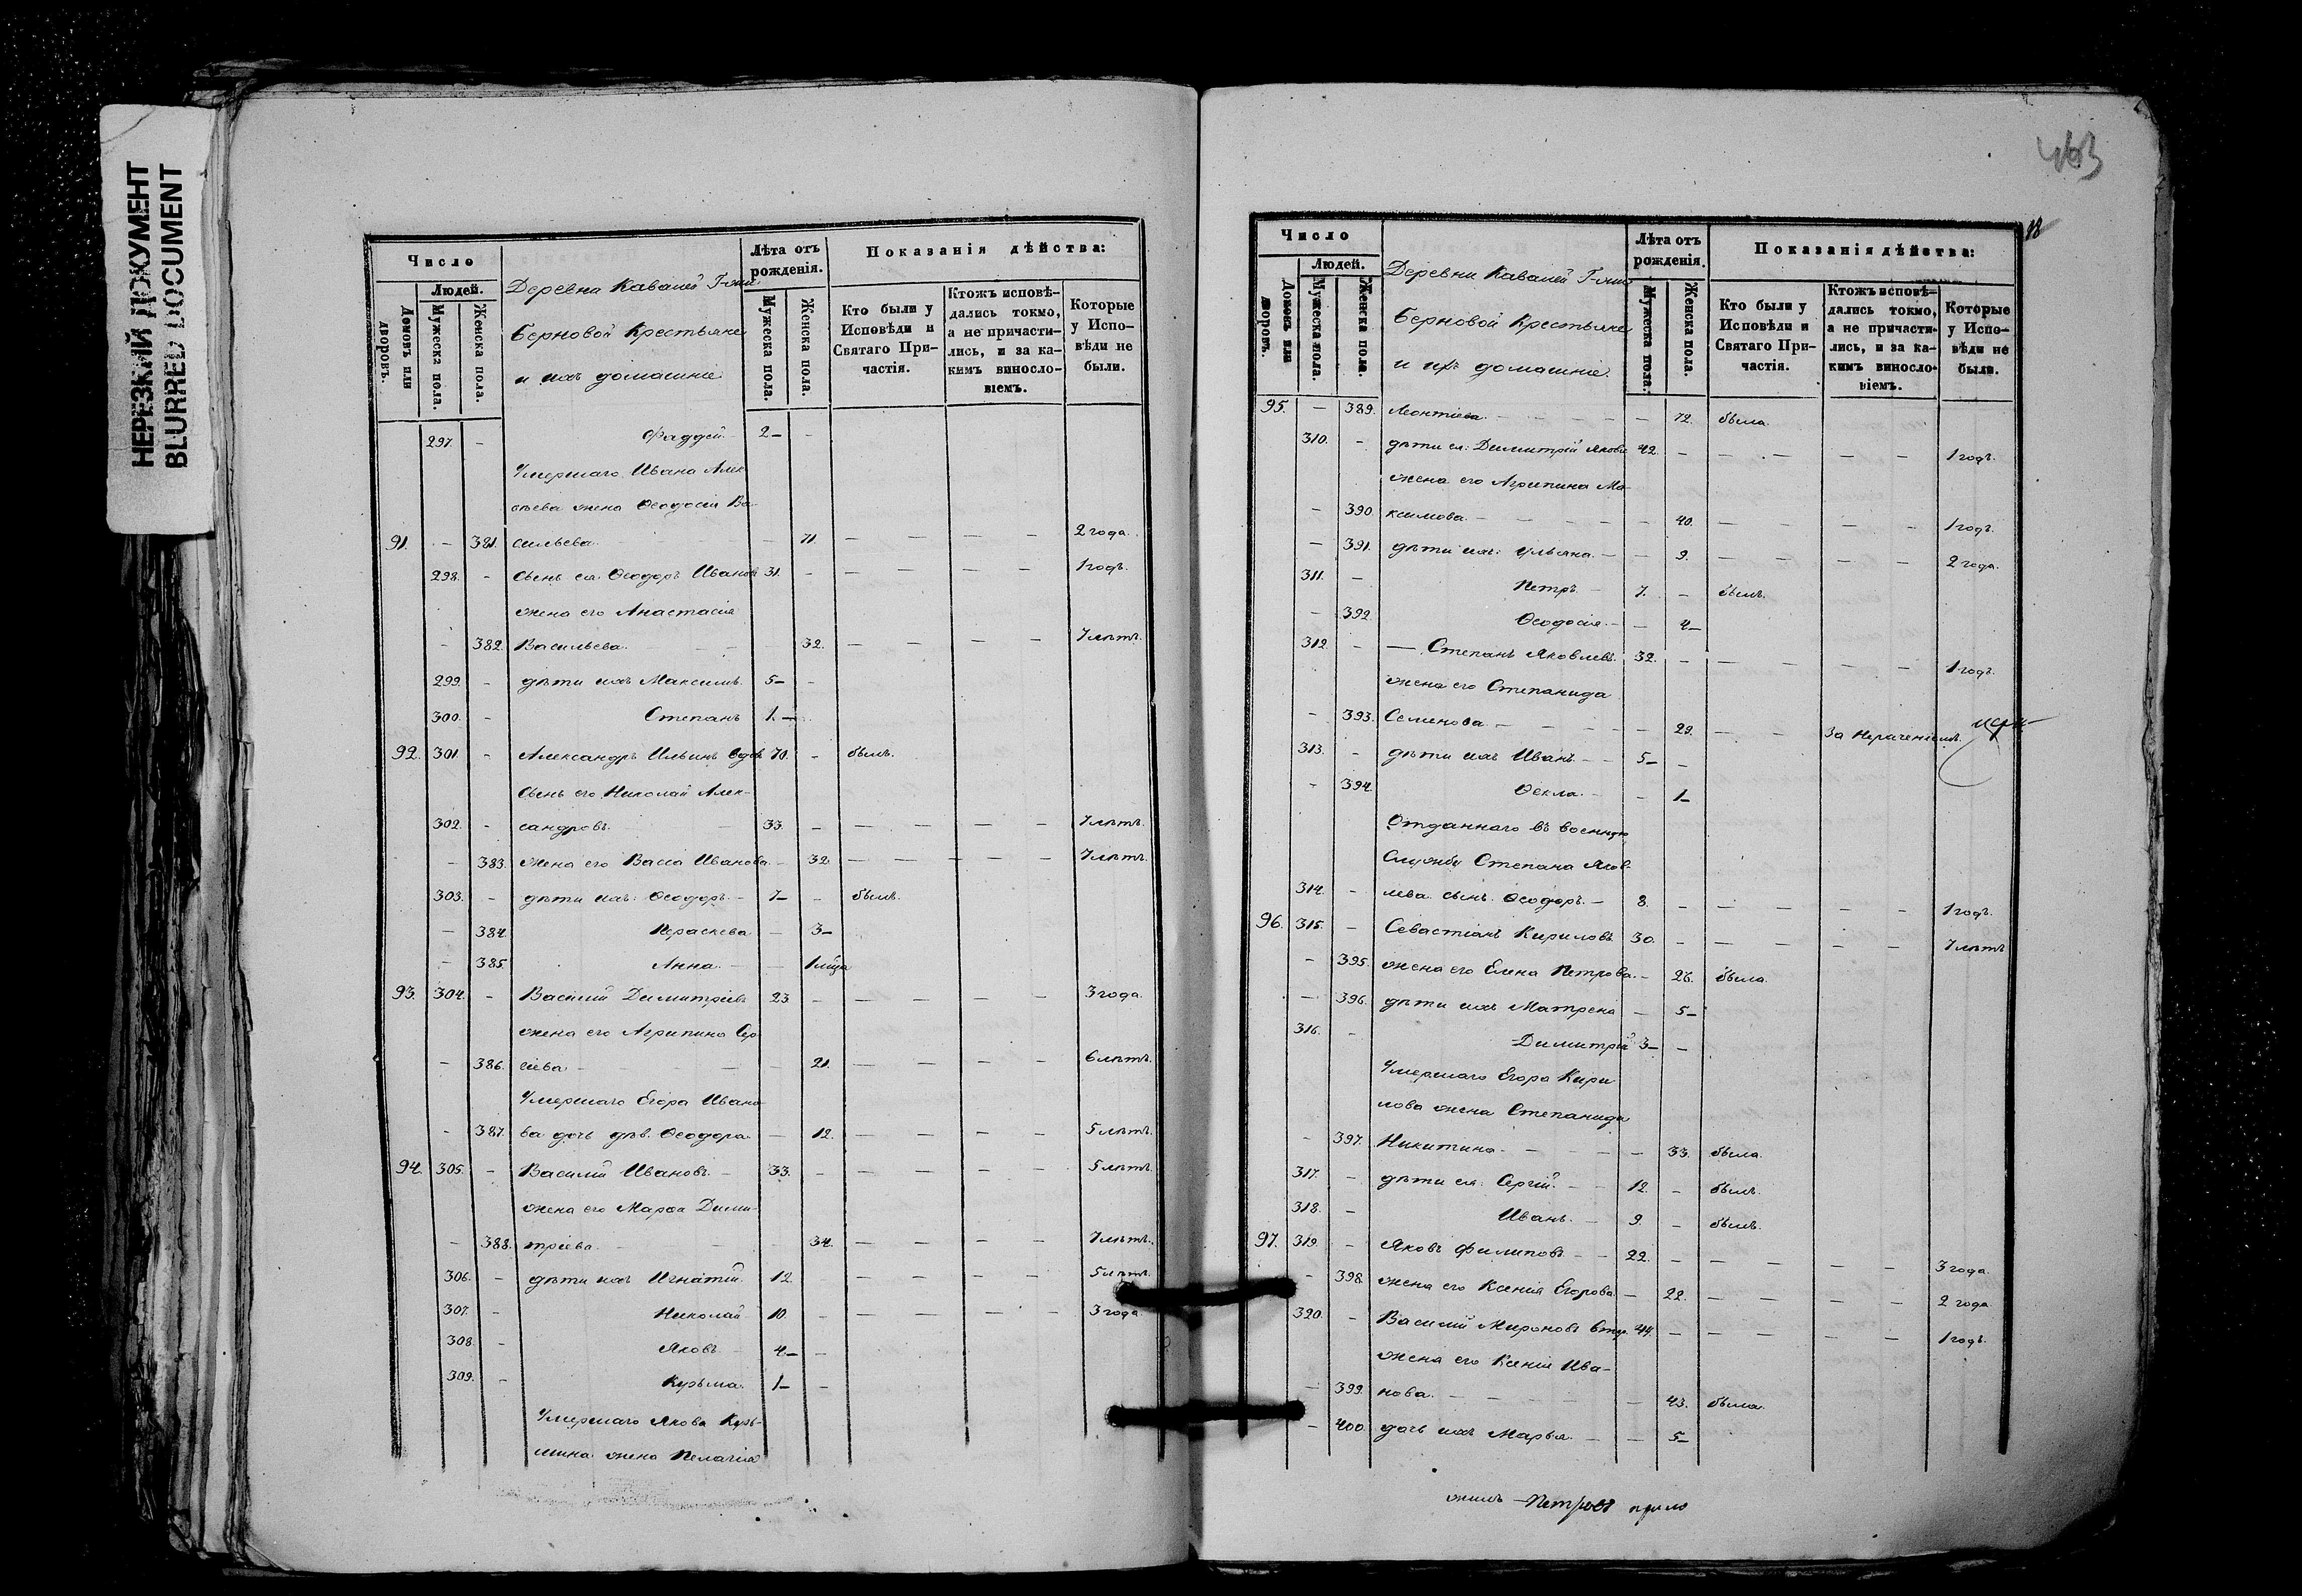 НЕРЕЗКИЙ ДОКУМЕНТ
BLURRED DOCUMENT
Число
Людей.
Домовъ или дворовъ.
Мужеска пола.
Женска пола.
Деревни Кавалей Г-жи
Берновой Крестьяне
и ихъ домашніе.
Лѣта отъ рожденія.
Мужеска пола.
Женска пола.
Показанія дѣйства:
Кто были у Исповѣди и Святаго Причастія.
Ктожъ исповѣдались токмо, а не причастились, и за какимъ винословіемъ.
Которые у Исповѣди не были.
297. - Фаддей - 2 - -
Умершаго Ивана Алек
сѣева жена Ѳеодосія Ва-
91. - 381. сильева. - 71. - - - - 2 года.
298. - Сынъ ея: Ѳеодоръ Ивановъ 31. - - - - - 1 годъ.
жена его Анастасія
- 382. Васильева. - - - 32. - - - - 7 лѣтъ.
299. - дѣти ихъ Максимъ. 5 - -
300. - Степанъ 1. -
92. 301. - Александръ Ильинъ Вдов. 70. - былъ.
Сынъ его Николай Алек-
302. - сандровъ. - 33. - - - - - 7 лѣтъ.
- 383. жена его Васса Иванова. - 32. - - - - - 7 лѣтъ.
303. - дѣти ихъ: Ѳеодоръ. - 7 - - былъ.
- 384. Параскева - 3 -
- 385. Анна. - - 1 мца
93. 304. - Василій Димитріевъ 23. - - - - - 3 года.
жена его Агрипина Сер
- 386. гіева - - - - 21. - - - - 6 лѣтъ.
Умершаго Егора Ивано
- 387. ва дочь дѣв. Ѳеодора. - 12. - - - - 5 лѣтъ.
94. 305. - Василій Ивановъ. - 33. - - - - - 5 лѣтъ.
жена его Марѳа Дими-
- 388. тріева. - - - 34. - - - - 7 лѣтъ.
306. - дѣти ихъ Игнатій. 12. - - - - 5 лѣтъ.
307. - Николай 10. - - - - 3 года
308. - Яковъ - 4 - -
309. - Кузьма. 1 - -
Умершаго Якова Кузь-
мина жена Пелагія
463
Число
Людей.
Домовъ или дворовъ.
Мужеска пола.
Женска пола.
Деревни Кавалей Г-жи
Берновой Крестьяне
и ихъ домашніе.
Лѣта отъ рожденія.
Мужеска пола.
Женска пола.
Показанія дѣйства:
Кто были у Исповѣди и Святаго Причастія.
Ктожъ исповѣдались токмо, а не причастились, и за какимъ винословіемъ.
Которые у Исповѣди не были.
95. - 389. Леонтіева. - - - - 72. была.
310. - дѣти ея: Димитрій Яковл 42. - - - - - 1 годъ.
жена его Агрипина Ма-
- 390. ксимова. - - - - 40. - - - 1 годъ.
- 391. дѣти ихъ: Ульяна. - - 9. - - - - 2 года.
311. - Петръ. - 7. - былъ.
- 392. Ѳеодосія. - - 4 -
312. - - Степанъ Яковлевъ. 32. - - - - - 1 годъ.
жена его Степанида
- 393. Семенова. - - - - 29. - - За нераченіемъ.
313. - дѣти ихъ Иванъ. - - 5 - -
- 394. Ѳекла. - - 1 -
Отданнаго въ военную
Службу Степана Яков-
314. - лева сынъ Ѳеодоръ. - 8. - - - - - 1 годъ.
96. 315. - Севастіанъ Кириловъ 30. - - - - - 7 лѣтъ
- 395. жена его Елена Петрова. - 26. была.
- 396. дѣти ихъ Матрена - 5 -
316. - Димитрій 3 - -
Умершаго Егора Кири
лова жена Степанида
- 397. Никитина. - - - - 33. была.
317. - дѣти ея: Сергій. - - 12. - былъ.
318. - Иванъ. - 9. - былъ.
97. 319. - Яковъ Филиповъ - - 22. - - - - - 3 года
- 398. жена его Ксенія Егорова. - 22. - - - - 2 года
320. - Василій Мироновъ 44. - - - - - 1 годъ.
жена его Ксенія Ива-
- 399. нова. - - - - - 43. была.
- 400. дочь ихъ Марья. - - 5 -